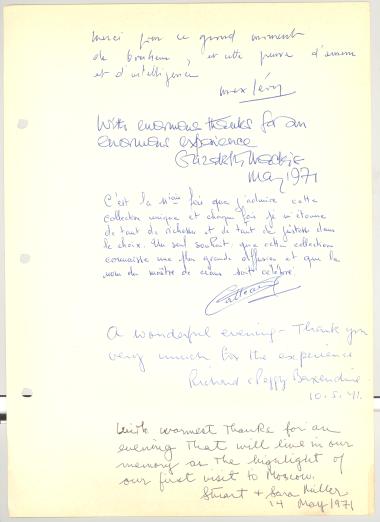 Merci pour ce grand moment
de bonheur, et cette preuve d'amour
et d'intelligence
Max Lévy
With enormous thanks for an
enormous experience
Mackie
May 1971
C'est la nième fois que j'admire cette
collection unique et chaque fois je m'étonne
de tant de richesse et de tant de justesse dans
le choix. Un seul souhait, que cette collection
connaisse une plus grande diffusion et que le
nom du maître de céans soit célébré
A wonderful evening - Thank you
very much for the experience
Richard & Peggy Baxendine.
10.5.71.
With warmest thanks for an
evening that will live in our
memory as the highlight of
our first visit to Moscow.
Stuart & Sara Miller
14 May 1971